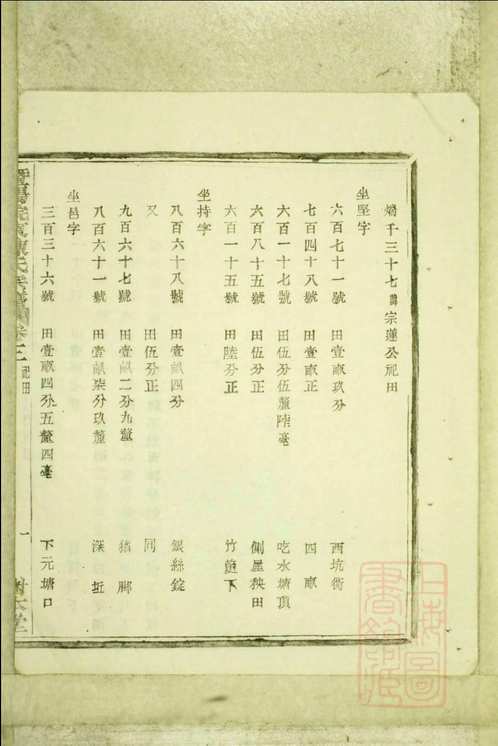 千三十七 宗蓮公祀田
坐堅字
六百七十一號 田壹畝玖分 西坑衕
七百四十八號 田壹畝正 四畝
六百一十七號 田伍分伍釐陸毫 吃水塘頂
六百八十五號 田伍分正 側屋秧田
六百一十五號 田陸分正 竹 下
坐持字
八百六十八號 田壹畝四分 銀絲錠
又 田伍分正 同
九百六十七號 田壹畝二分九釐 腳
八百六十一號 田壹畝柒分玖釐 深坵
坐邑字
三百三十六號 田壹畝四分五釐四毫 下元塘口
卷之三 祀田 一
上海圖書館藏